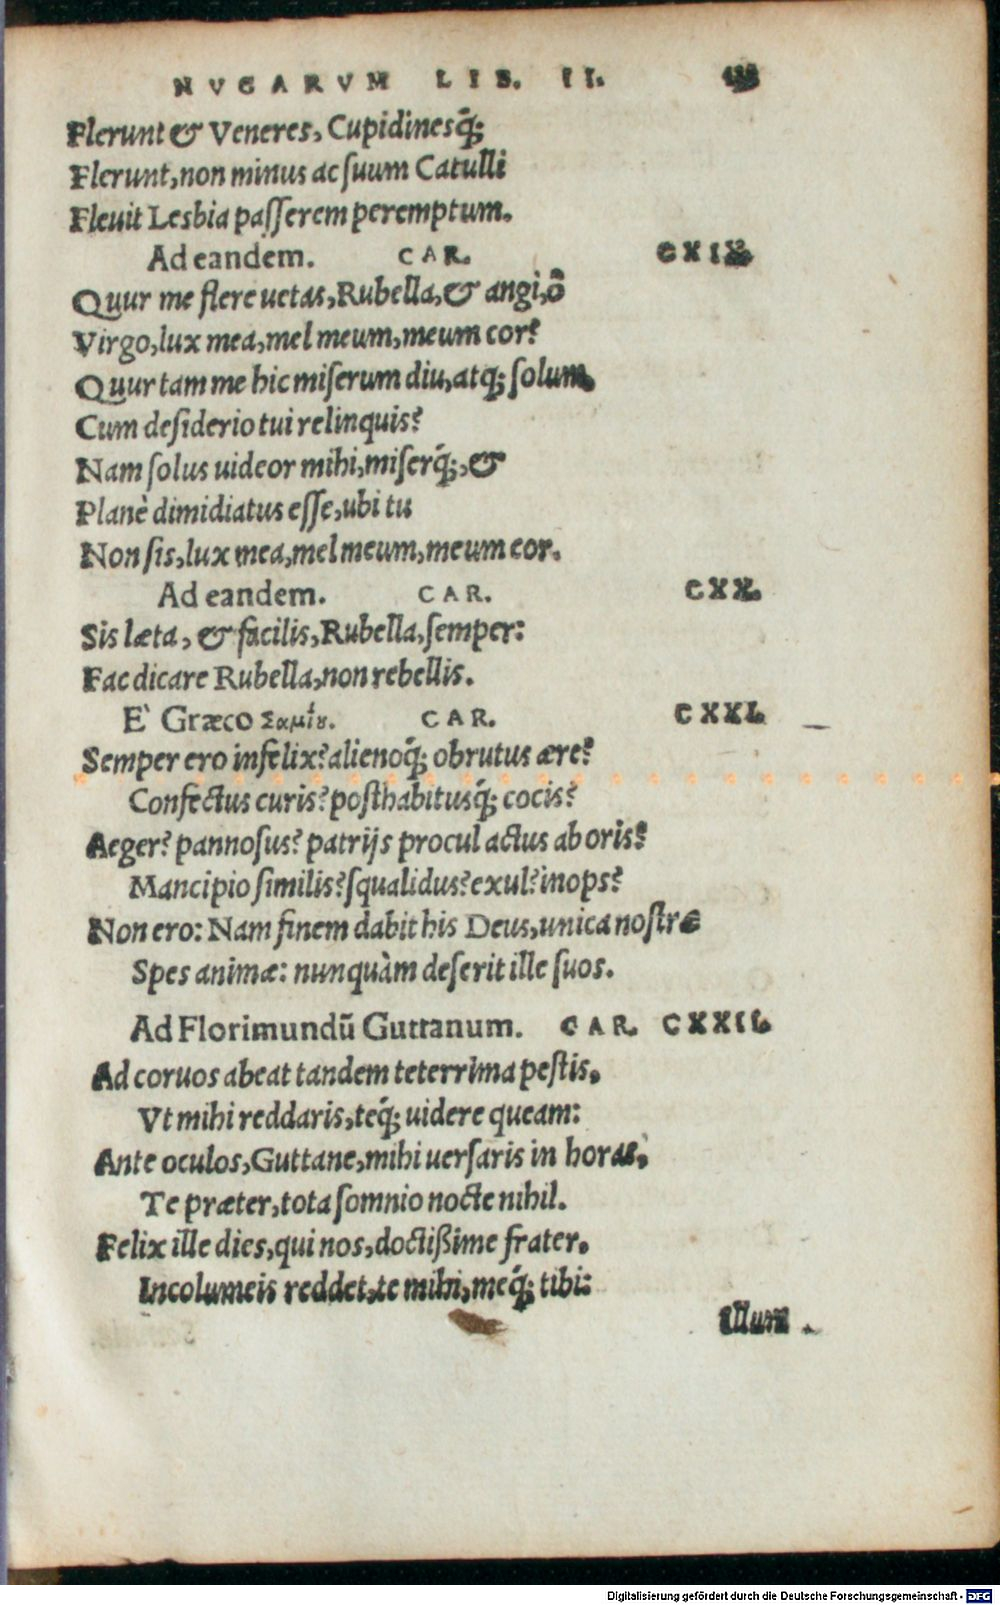 NVGARVM LIB. II.
Flerunt & Veneres, Cupidinesq́;
Flerunt, non minus ac suum Catulli
Fleuit Lesbia passerem peremptum.
Ad eandem. CAR. CXIX.
Quur me flere uetas, Rubella, & angi, ô
Virgo, lux mea, mel meum, meum cor?
Quur tam me hic miserum diu, atq; solum
Cum desiderio tui relinquis?
Nam solus uideor mihi, miserq́;, &
Planè dimidiatus esse, ubi tu
Non sis, lux mea, mel meum, meum cor.
Ad eandem. CAR. CXX.
Sis læta, & facilis, Rubella, semper:
Fac dicare Rubella, non rebellis.
E` Græco Σαμίȣ. CAR. CXXI.
Semper ero infelix? alienoq́; obrutus ære?
Confectus curis? posthabitusq́; cocis?
Aeger? pannosus? patrijs procul actus ab oris?
Mancipio similis? squalidus? exul? inops?
Non ero: Nam finem dabit his Deus, unica nostræ
Spes animæ: nunquàm deserit ille suos.
Ad Florimundū Guttanum. CAR. CXXII.
Ad coruos abeat tandem teterrima pestis,
Vt mihi reddaris, teq́; uidere queam:
Ante oculos, Guttane, mihi uersaris in horas,
Te præter, tota somnio nocte nihil.
Felix ille dies, qui nos, doctißime frater,
Incolumeis reddet, te mihi, meq́; tibi:
Illum
Digitalisierung gefördert durch die Deutsche Forschungsgemeinschaft - DFG